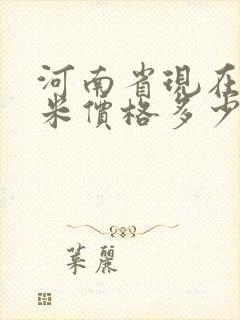 河南省現在
米價格多少
葉麗